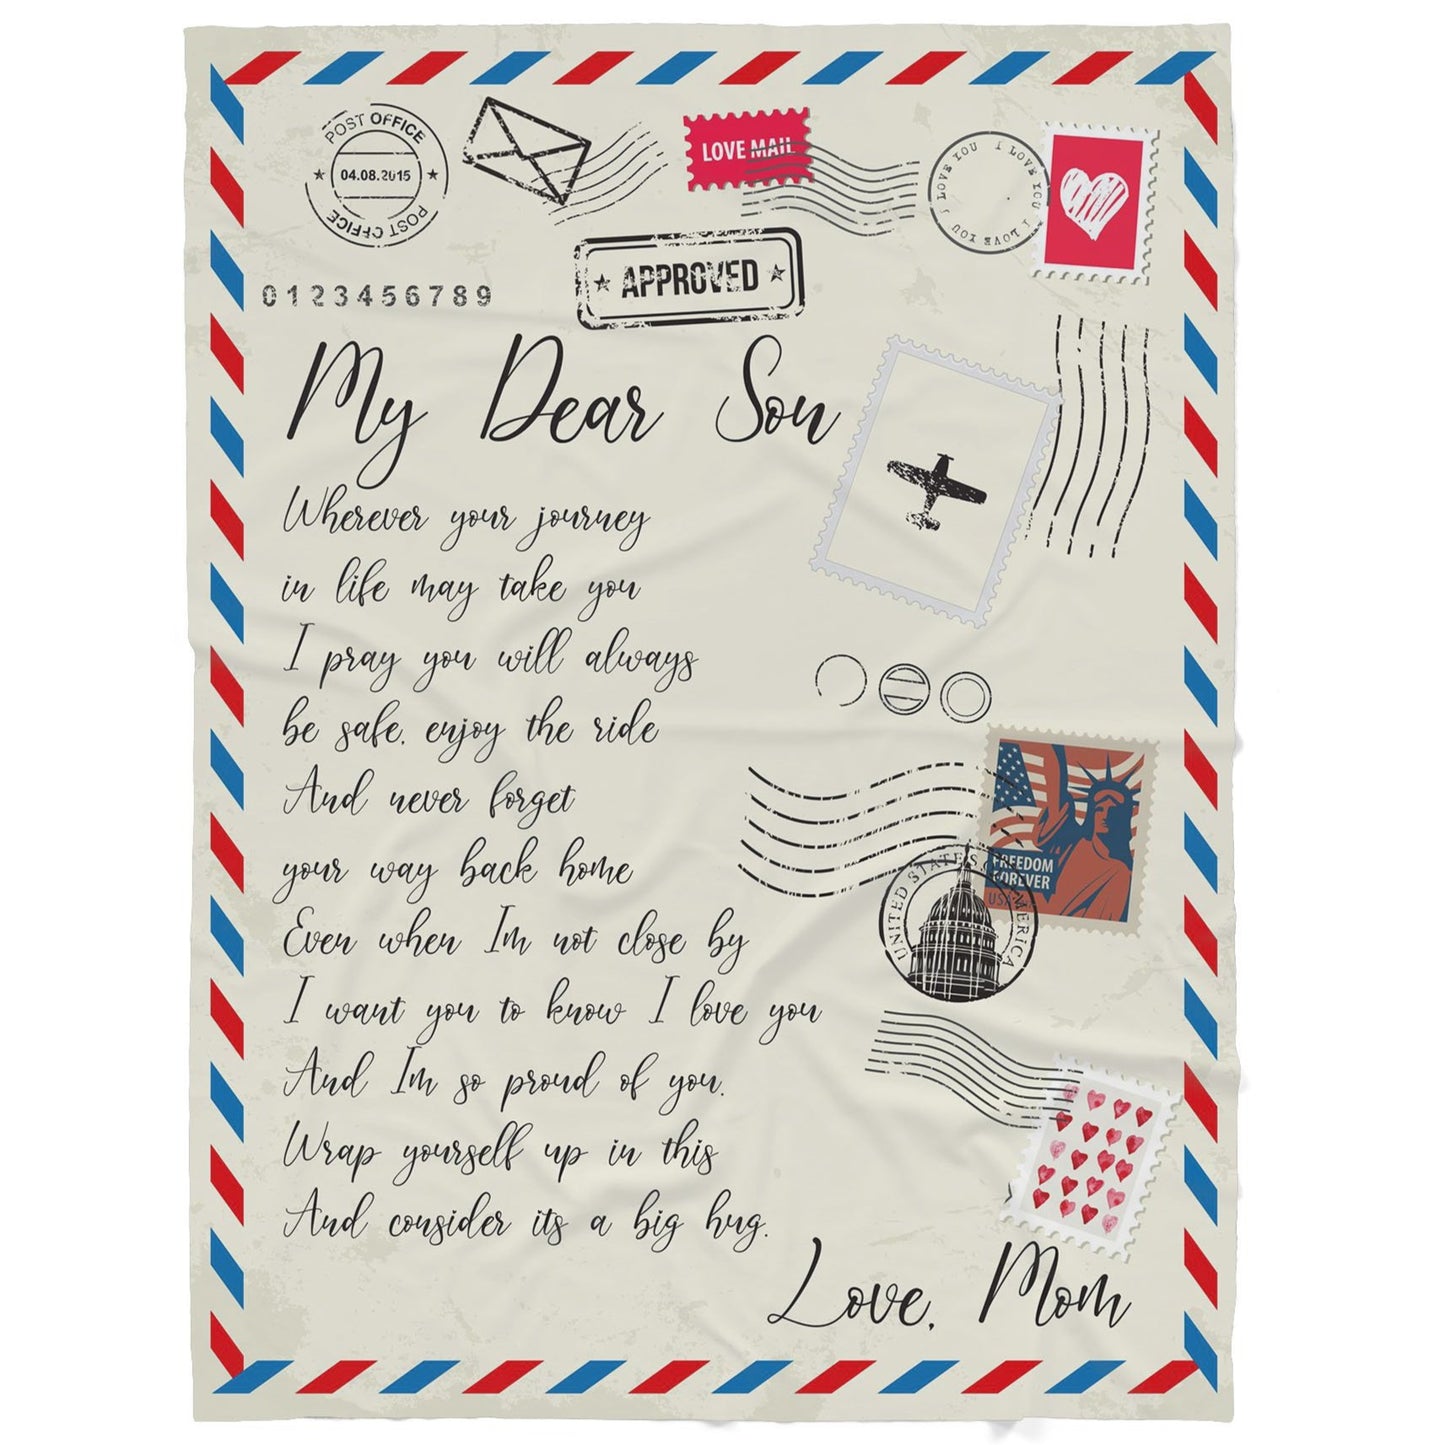 POST OFFICE
04.08.2015
POST OFFICE
LOVE MAIL
I LOVE YOU I LOVE YOU I LOVE YOU
0123456789
APPROVED
My Dear Son
Wherever your journey
in life may take you
I pray you will always
be safe, enjoy the ride
And never forget
your way back home
FREEDOM
FOREVER
USA
UNITED STATES OF AMERICA
Even when Im not close by
I want you to know I love you
And Im so proud of you.
Wrap yourself up in this
And consider its a big hug.
Love, Mom